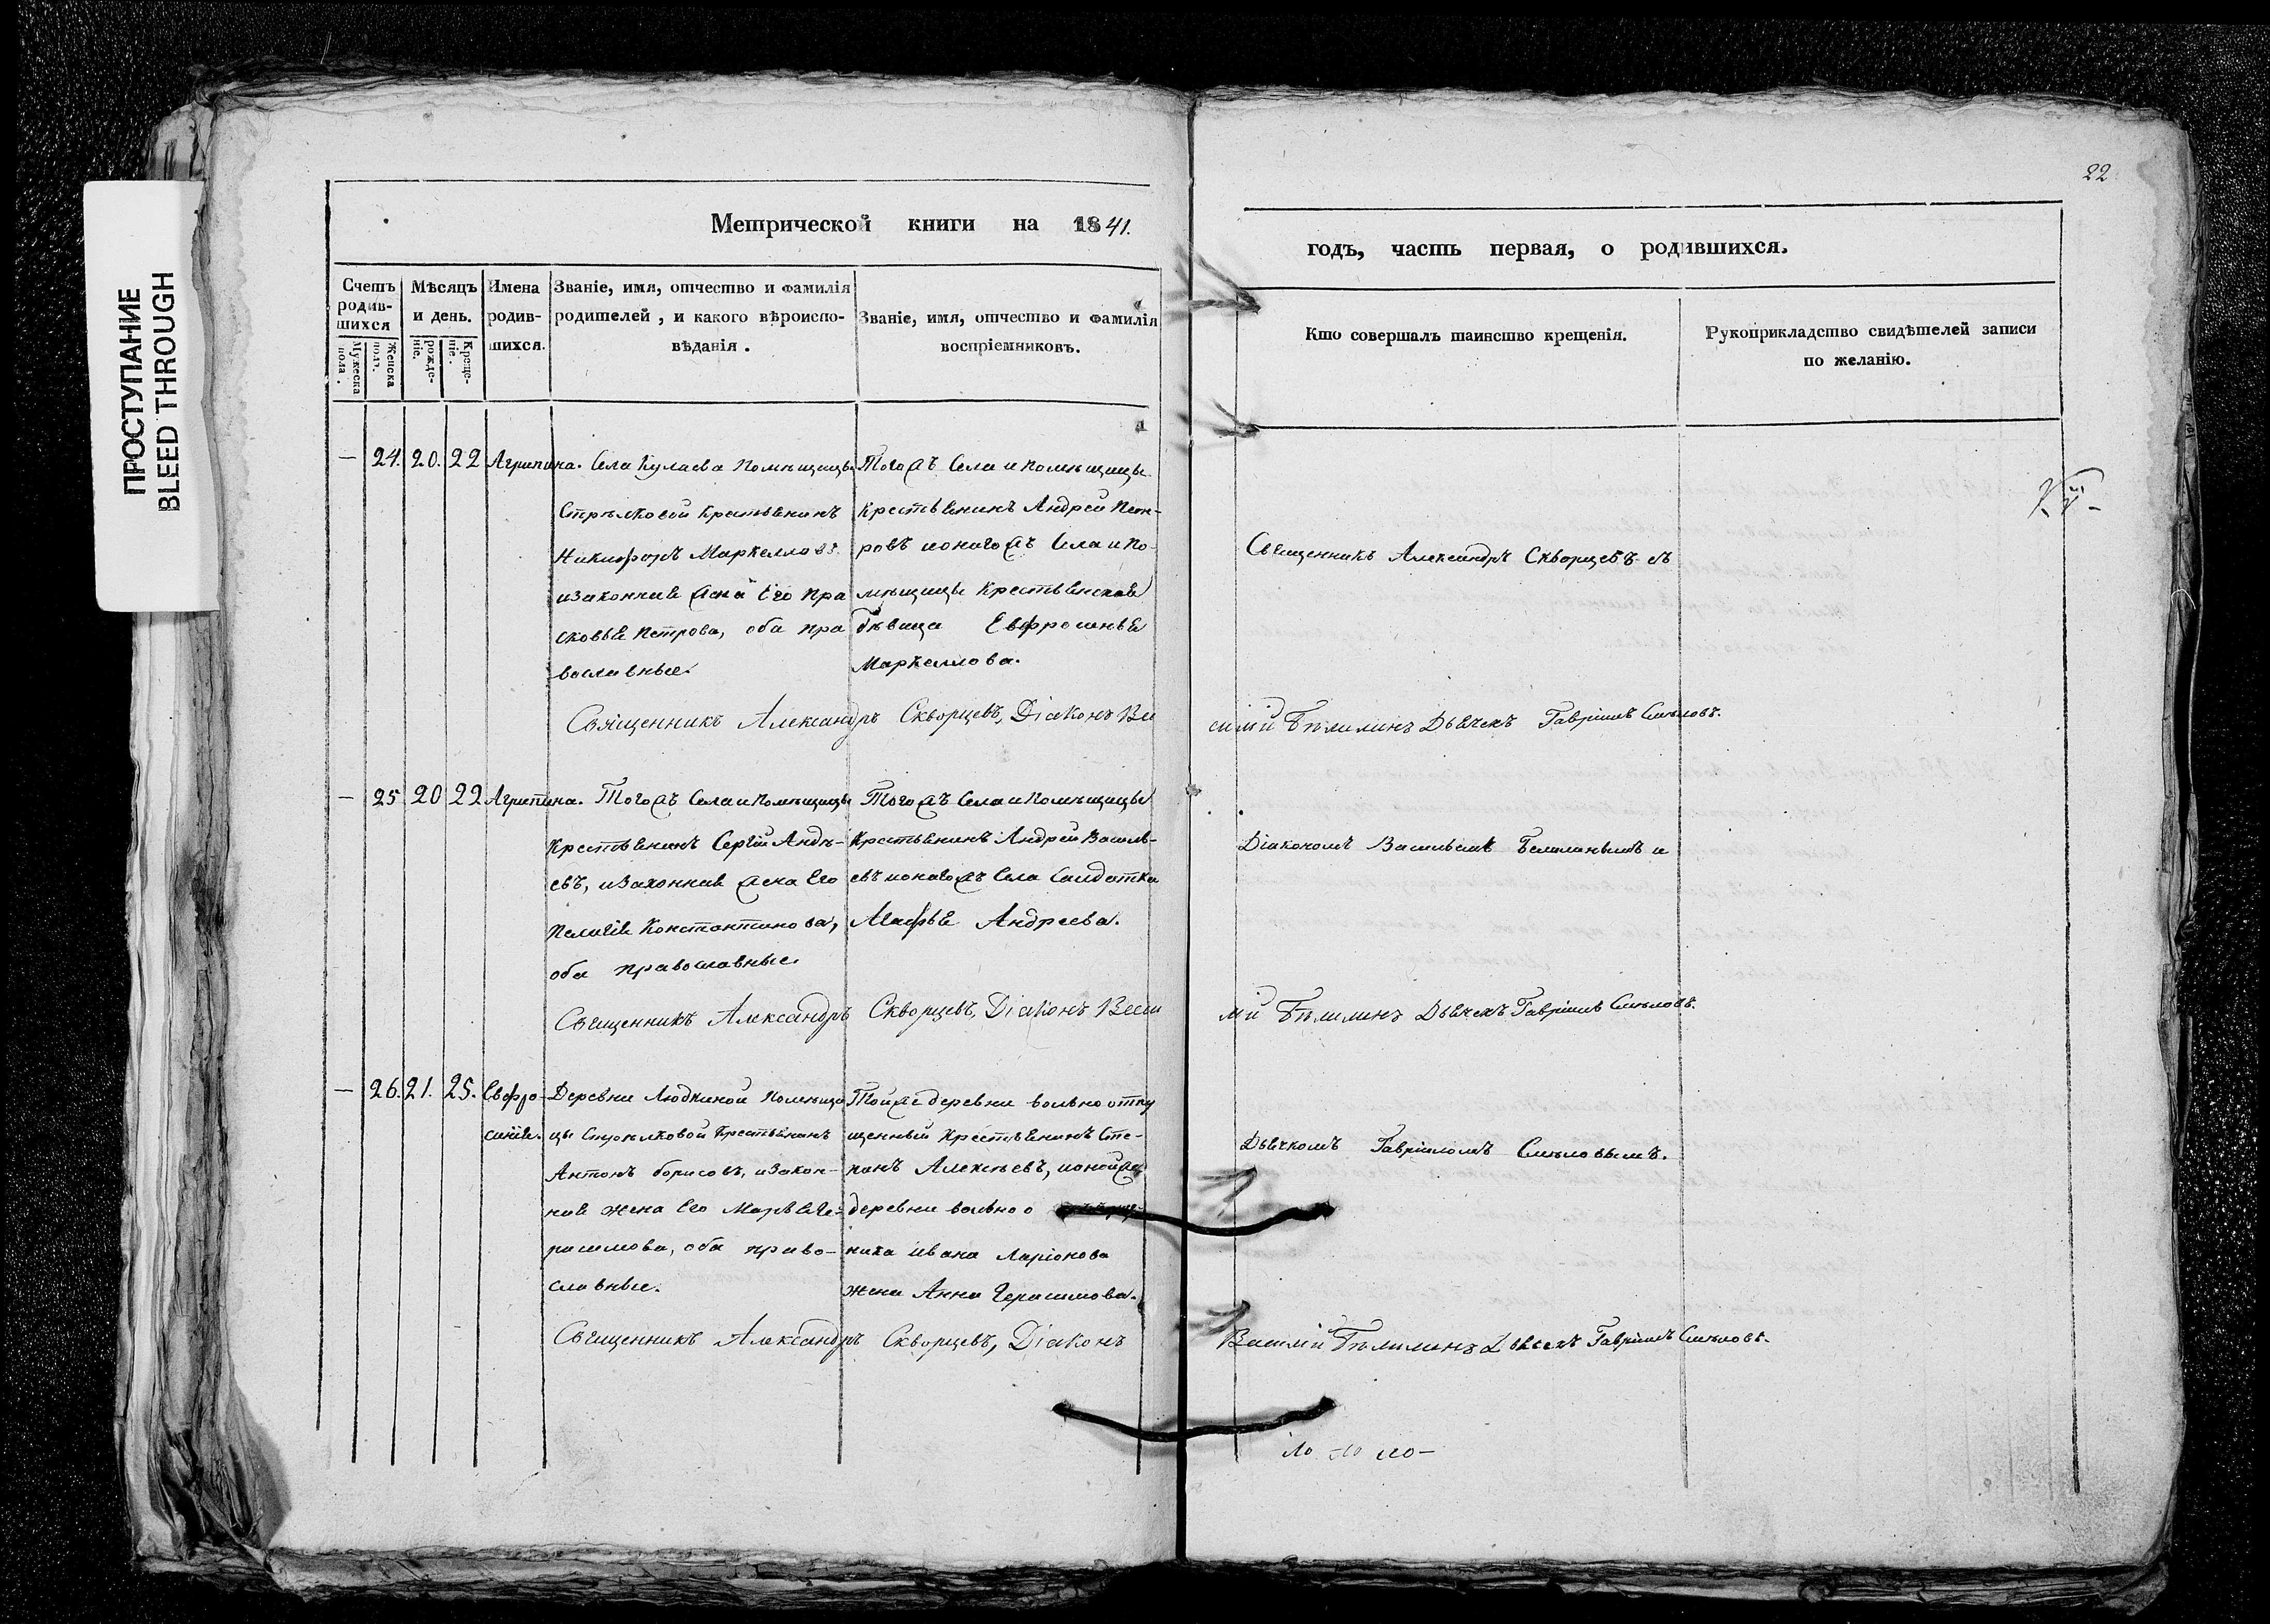 ПРОСТУПАНИЕ
BLEED THROUGH
22
Метрической книги на 1841.
годъ, часть первая, о родившихся.
Счетъ родив-шихся
Мужеска пола.
Женска пола.
Мѣсяцъ и день.
рожде-ніе.
Креще-ніе.
Имена родив-шихся.
Званіе, имя, отчество и фамилія
родителей, и какого вѣроиспо-
вѣданія.
Званіе, имя, отчество и фамилія
воспріемниковъ.
Кто совершалъ таинство крещенія.
Рукоприкладство свидѣтелей записи
по желанію.
— 24. 20. 22 Агрипина.
Села Кулаева помѣщицы
Стрѣлковой крестьянинъ
Никифоръ Маркелловъ
и законная жена его Пра
сковья Петрова, оба пра
вославные.
Тогожъ села и помѣщицы
крестьянинъ Андрей Пет-
ровъ и онагожъ села и по-
мѣщицы крестьянская
дѣвица Евфросинья
Маркеллова.
Священникъ Александръ Скворцевъ съ
Священникъ Александръ Скворцевъ, Діаконъ Ва
силій Бѣлилинъ Дьячекъ Гавріилъ Смѣловъ.
— 25 20 22 Агрипина.
Тогожъ села и помѣщицы
крестьянинъ Сергій Андре-
евъ, и законная жена его
Пелагія Константинова,
оба православные.
Тогожъ села и помѣщицы
крестьянинъ Андрей Василь-
евъ и онагожъ села солдатка
Марья Андреева.
Діакономъ Васильемъ Белилинымъ и
Священникъ Александръ Скворцевъ, Діаконъ Васи
лій Бѣлилинъ Дьячекъ Гавріилъ Смѣловъ.
— 26. 21. 25. Евфро-
синія.
Деревни Людкиной помѣщи
цы Стрѣлковой крестьянинъ
Антонъ Борисовъ, и закон-
ная жена его Марья Ге-
расимова, оба право-
славные.
Тойже деревни вольноотпу
щенный крестьянинъ Сте-
панъ Алексѣевъ, и онойже
деревни вольноо
ника Ивана Ларіонова
жена Анна Герасимова.
Дьячкомъ Гавріиломъ Смѣловымъ.
Священникъ Александръ Скворцевъ, Діаконъ
Василій Бѣлилинъ Дьячекъ Гавріилъ Смѣловъ.